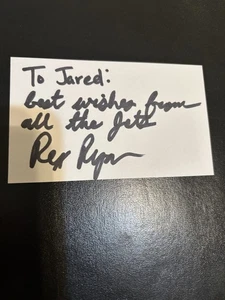 To Jared:
best wishes from
all the Jets
Rex Ryan